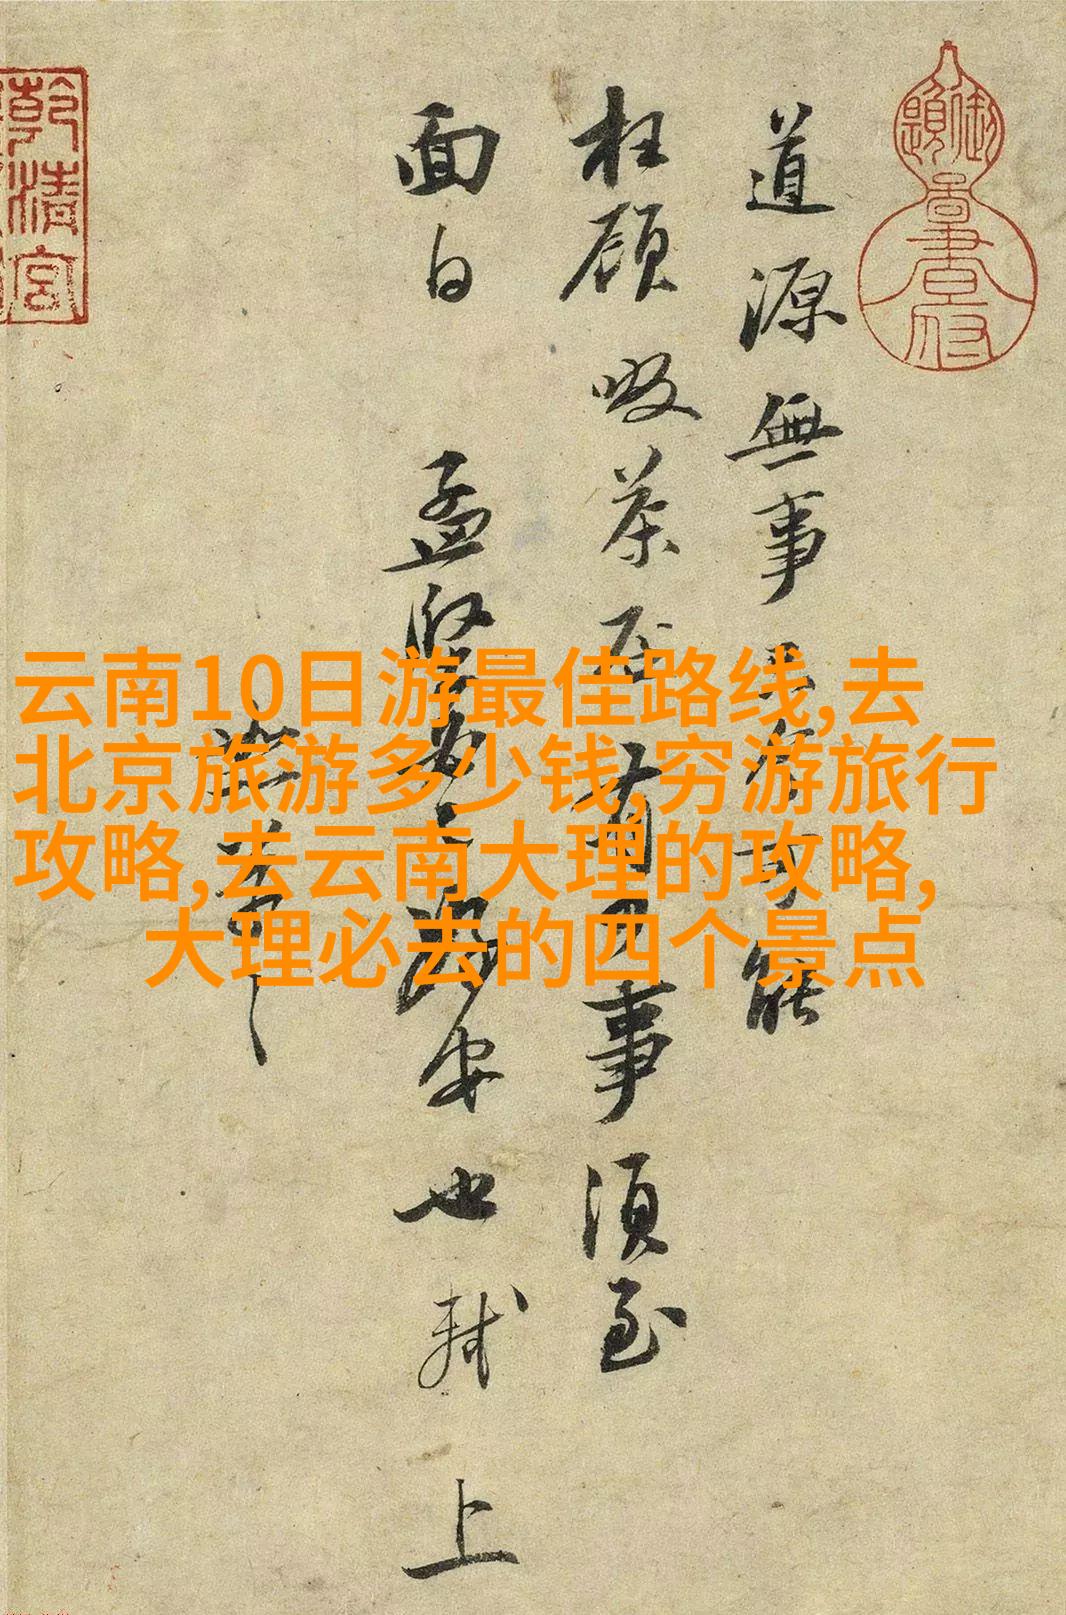 道源無事
枉顧啜茶否有少事須至
面白 孟堅
安也軾 上
云南10日游最佳路线,去
北京旅游多少钱,穷游旅行
攻略,去云南大理的攻略,
大理必去的四个景点
乾清宮
御題
圖書府